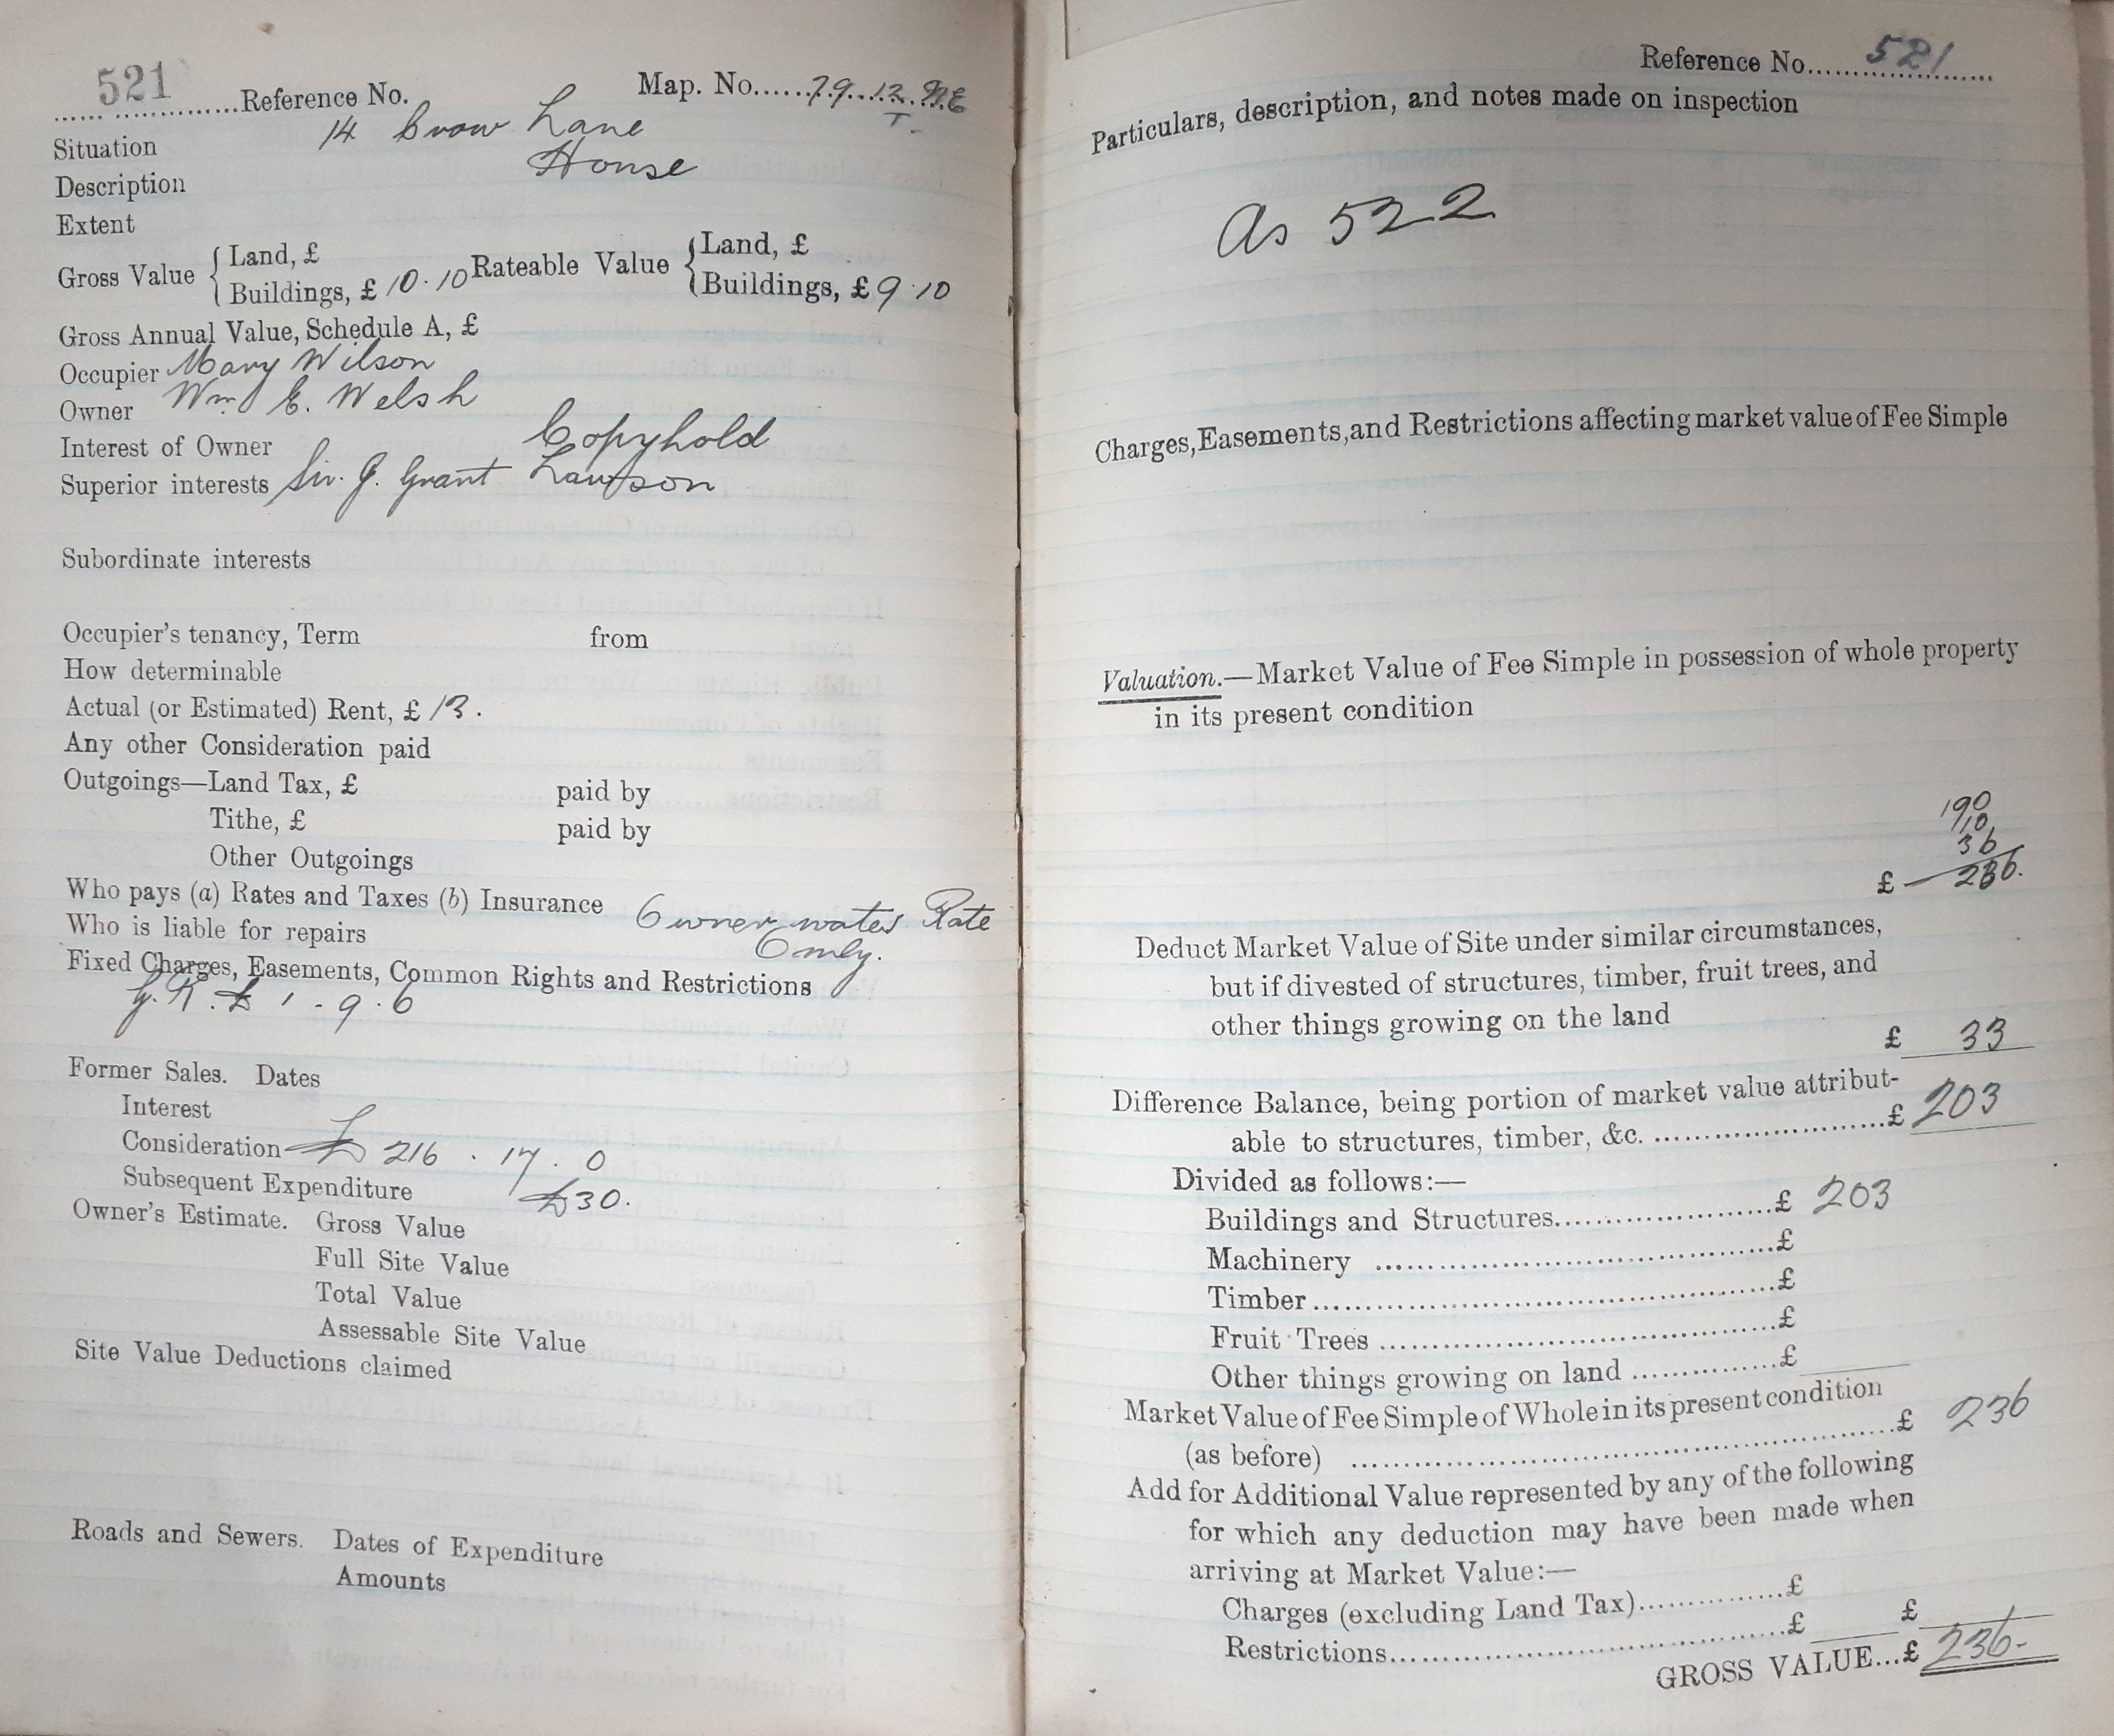 521 Reference No. Map. No. 79. 12. NE
T.
Situation 14 Crow Lane
Description House
Extent
Gross Value { Land, £ Rateable Value { Land, £
Buildings, £ 10.10 Buildings, £ 9.10
Gross Annual Value, Schedule A, £
Occupier Mary Wilson
Owner Wm E. Welsh
Interest of Owner Copyhold
Superior interests Sir. J. Grant Lawson
Subordinate interests
Occupier's tenancy, Term from
How determinable
Actual (or Estimated) Rent, £ 13.
Any other Consideration paid
Outgoings—Land Tax, £ paid by
Tithe, £ paid by
Other Outgoings
Who pays (a) Rates and Taxes (b) Insurance Owner water Rate
Who is liable for repairs Only.
Fixed Charges, Easements, Common Rights and Restrictions
G. R. £ 1 - 9 . 6
Former Sales. Dates
Interest
Consideration £ 216 . 17 . 0
Subsequent Expenditure £30.
Owner's Estimate. Gross Value
Full Site Value
Total Value
Assessable Site Value
Site Value Deductions claimed
Roads and Sewers. Dates of Expenditure
Amounts
Reference No. 521
Particulars, description, and notes made on inspection
As 522
Charges, Easements, and Restrictions affecting market value of Fee Simple
Valuation.—Market Value of Fee Simple in possession of whole property
in its present condition
190
10
36
£ 236.
Deduct Market Value of Site under similar circumstances,
but if divested of structures, timber, fruit trees, and
other things growing on the land
£ 33
Difference Balance, being portion of market value attribut-
able to structures, timber, &c. £ 203
Divided as follows:—
Buildings and Structures £ 203
Machinery £
Timber £
Fruit Trees £
Other things growing on land £
Market Value of Fee Simple of Whole in its present condition
(as before) £ 236
Add for Additional Value represented by any of the following
for which any deduction may have been made when
arriving at Market Value:—
Charges (excluding Land Tax) £
Restrictions £ £
GROSS VALUE...£ 236-